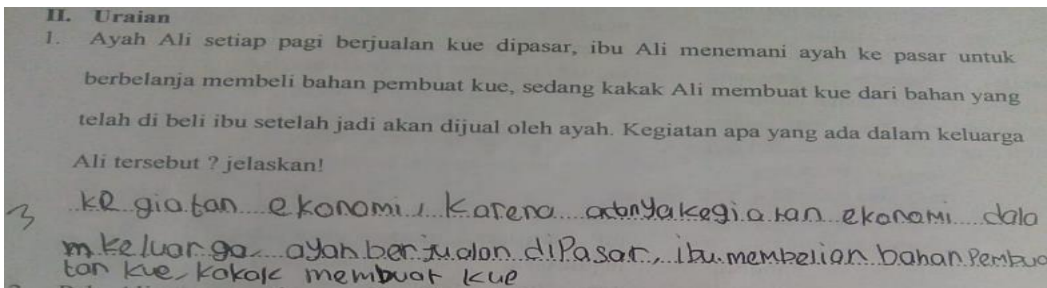 II. Uraian
1. Ayah Ali setiap pagi berjualan kue dipasar, ibu Ali menemani ayah ke pasar untuk
berbelanja membeli bahan pembuat kue, sedang kakak Ali membuat kue dari bahan yang
telah di beli ibu setelah jadi akan dijual oleh ayah. Kegiatan apa yang ada dalam keluarga
Ali tersebut ? jelaskan!
3 kegiatan ekonomi, Karena adanya kegiatan ekonomi dala
m keluarga ayah berjualan dipasar, ibu membelian bahan Pembua
tan kue, kakak membuat kue